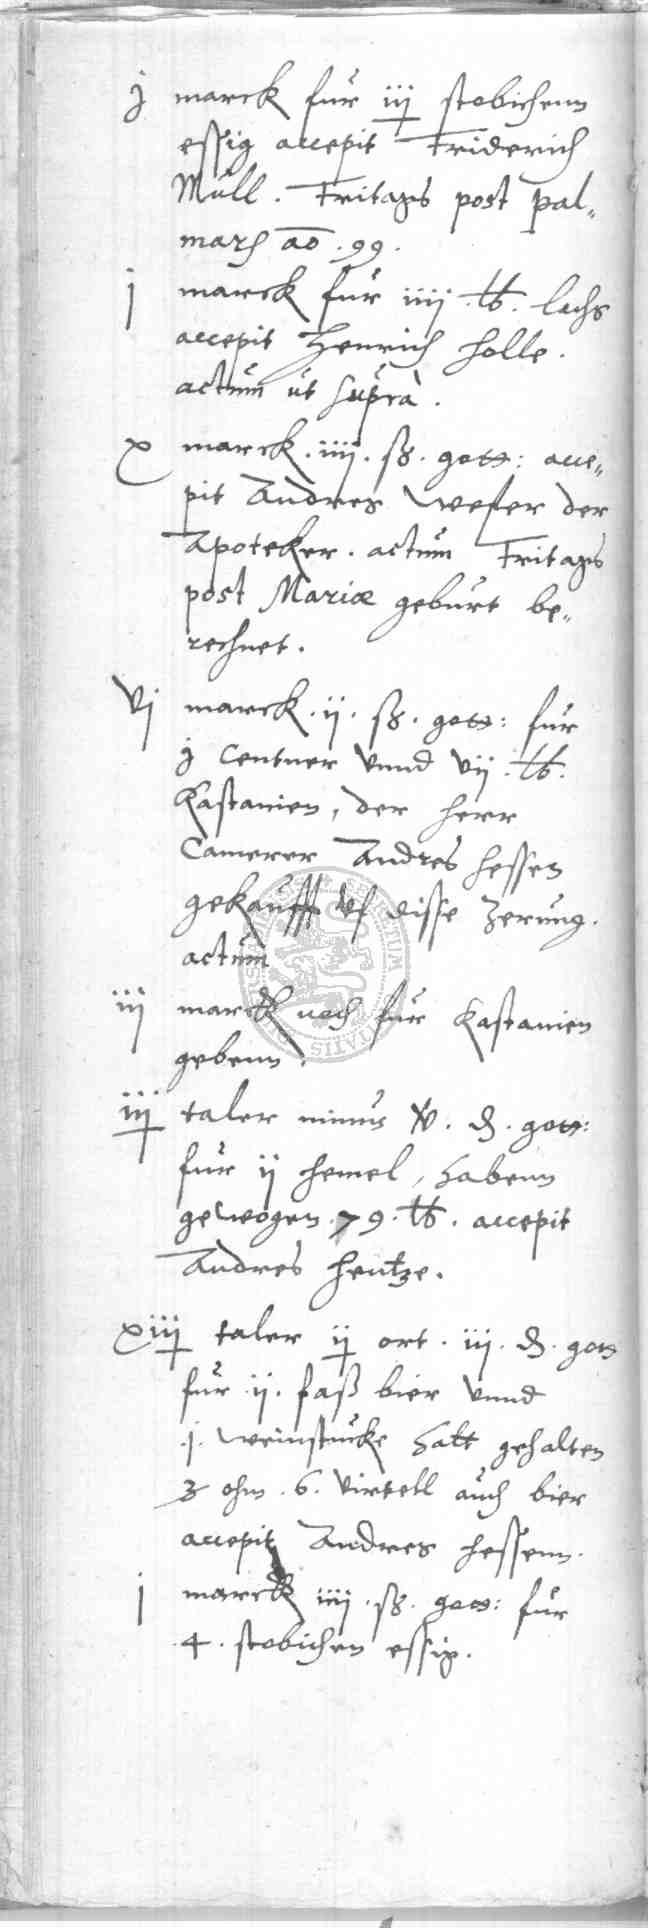 j marck fur iij stobichenn
essig accepit Friderich
Mull. Fritags post pal„
marh ao .99.
j marck fur iiij .lb. lachs
accepit Henrich Holle.
actum ut supra.
x marck .iiij. ß. gott: acce„
pit Andres Wefer der
Apoteker. actum Fritags
post Mariæ geburt be„
rechnet.
vj marck .ij. ß. gott: fur
j Centner vnnd vij .lb.
Kastanien, der herr
Camerer Andres Hessen
gekaufft vf disse Zerung.
actum
iij marck noch fur Kastanien
gebenn.
iij taler minus v. d. gott:
fur ij hemel, habenn
gewogen .79. lb. accepit
Andres Hentze.
xiij taler ij ort. iij. d. gott
fur .ij. faß bier vnnd
.j. weinstucke hatt gehalten
3 ohm .6. virtell auch bier
accepit Andres Hessenn.
j marck iiij .ß. gott: fur
.4. stobichen essig.